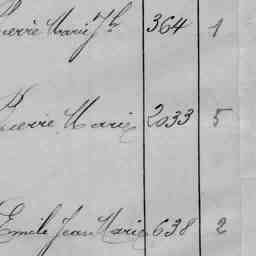 Pierre Marie Jh 364 1
Pierre Marie 2033 5
Emile Jean Marie 638 2